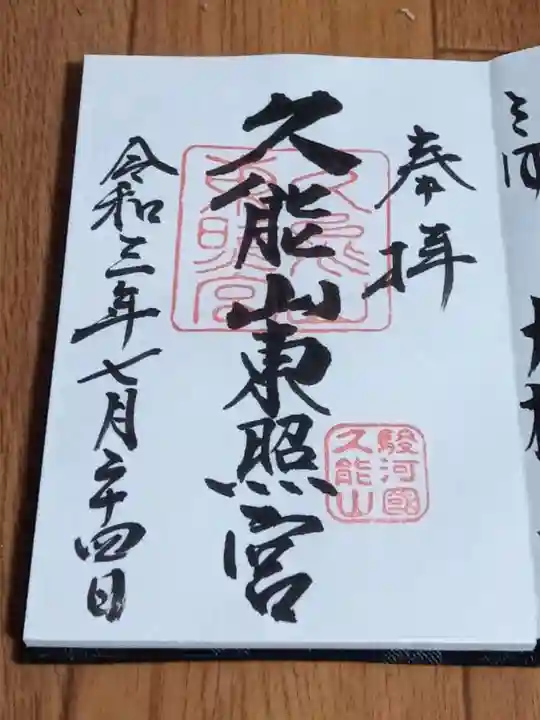 奉拝
久能山東照宮
駿河國
久能山
令和三年七月二十四日